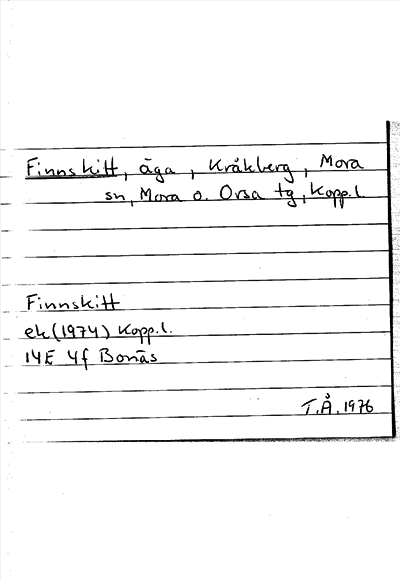 Finnskitt, äga, Kråkberg, Mora
sn, Mora o. Orsa tg, Kopp.l
Finnskitt
ek (1974) Kopp.l.
14E 4f Bonäs
T.Å. 1976